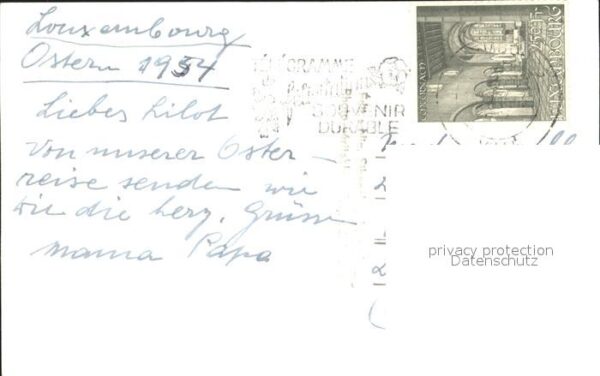 Louxembourg
Ostern 1954
Liebes Lilot
Von unserer Oster-
reise senden wir
Dir die herz. Grüsse
Mama Papa
TÉLÉGRAMME
SOUVENIR
DURABLE
ECHTERNACH
2.50 Fr.
LUXEMBOURG
privacy protection
Datenschutz